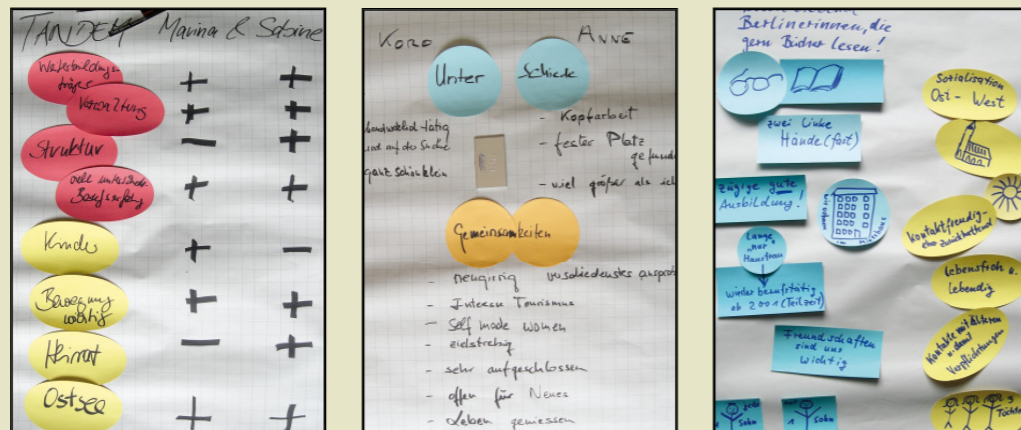 TANDEM Marina & Sabine
Weiterbildungs-
träger
+ +
Verwaltung
+ +
Struktur
– +
Berufserfahrung
+ +
Kinder
+ –
Bewegung
wichtig
+ +
Heirat
– +
Ostsee
+ +
KORD ANNE
Unter Schiede
handwerklich tätig
und auf der Suche
ganz schön klein
- Kopfarbeit
- fester Platz
gefunden
- viel größer als ich
Gemeinsamkeiten
- neugierig
verschiedenstes
- Interesse Tourismus
- Self made women
- zielstrebig
- sehr aufgeschlossen
- offen für Neues
- Leben geniessen
Berlinerinnen, die
gern Bücher lesen!
zwei linke
Hände (fast)
zügige gute
Ausbildung!
wir wohnen im Mietshaus
Lange
"nur"
Hausfrau
wieder berufstätig
ab 2001 (Teilzeit)
Freundschaften
sind uns
wichtig
jede
Sohn
1 Sohn
Sozialisation
Ost - West
Kontaktfreudig -
eher zurückhaltend
Lebensfroh u.
lebendig
Kontakte mit älteren
u. damit
Verpflichtungen
3
Töchter